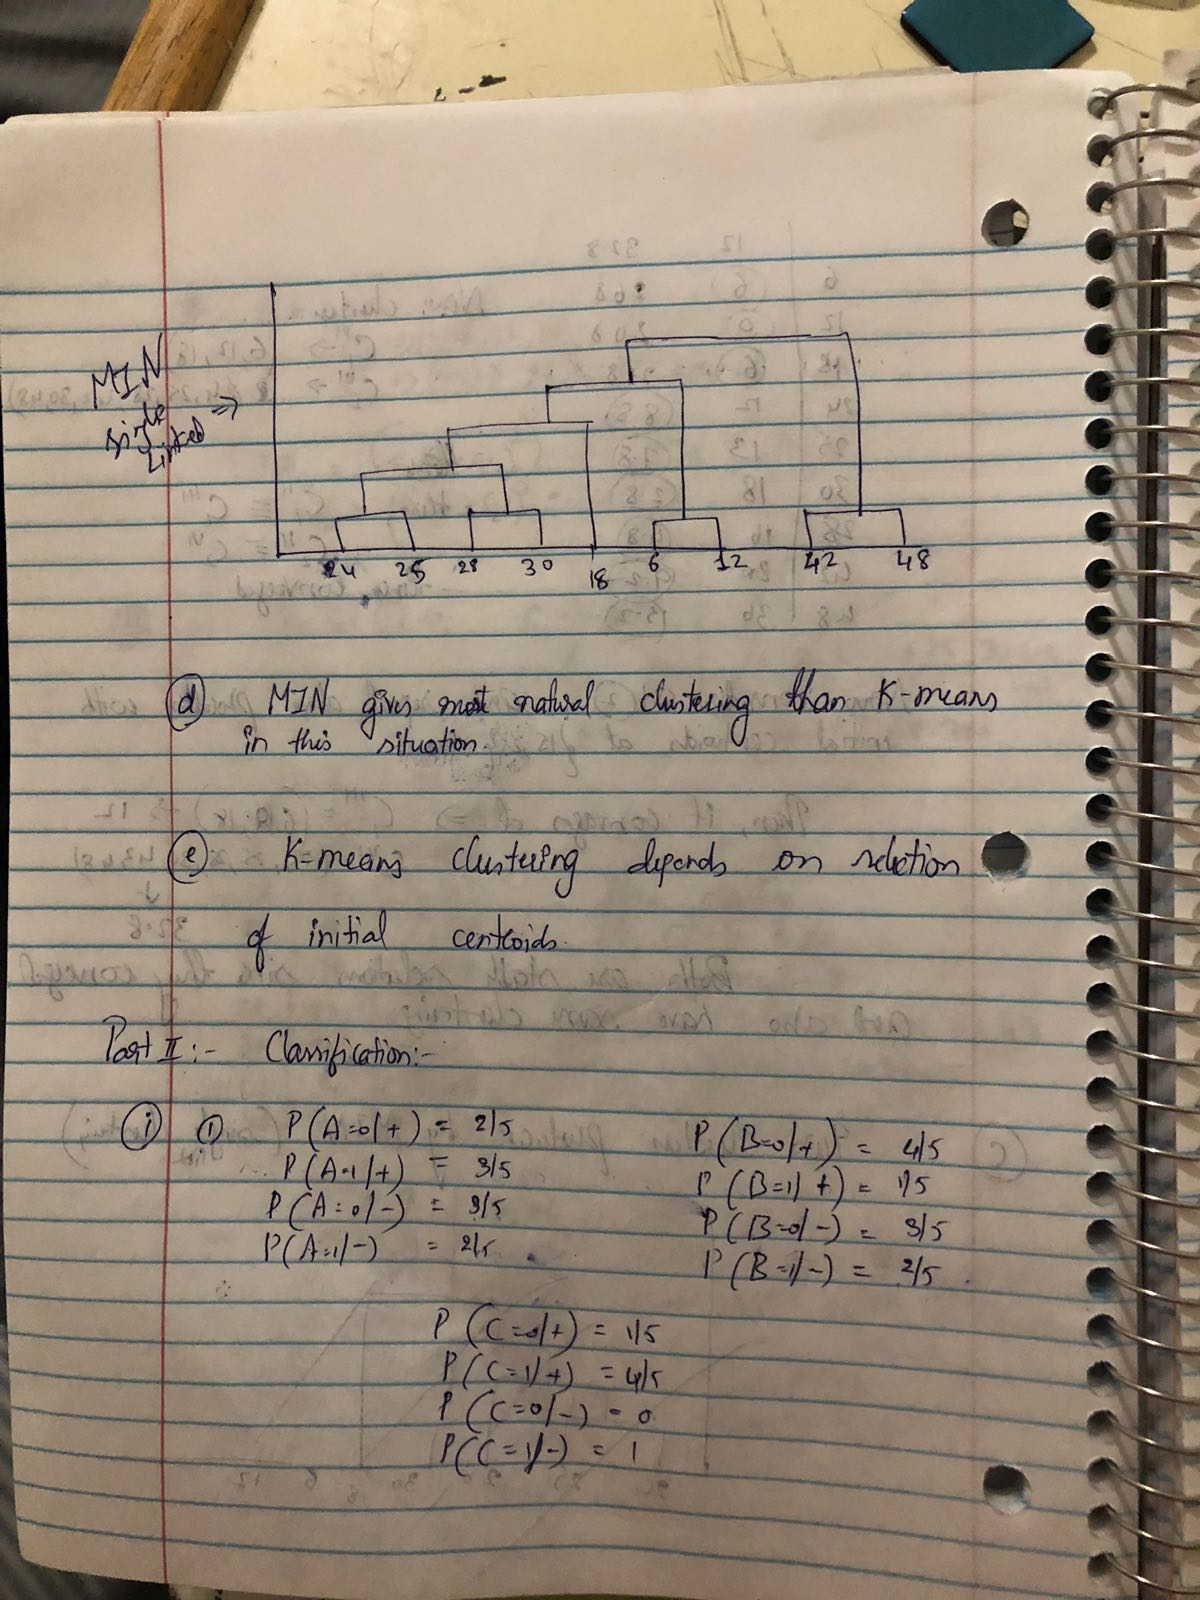 MIN
single
Linked ⇒
24 25 28 30 18 6 12 42 48
(d) MIN gives most natural clustering than K-means
in this situation.
(e) K-means clustering depends on selection
of initial centroids.
Part II :- Classification:-
(i) (1) P(A=0/+) = 2/5
P(A=1/+) = 3/5
P(A=0/-) = 3/5
P(A=1/-) = 2/5
P(B=0/+) = 4/5
P(B=1/+) = 1/5
P(B=0/-) = 3/5
P(B=1/-) = 2/5
P(C=0/+) = 1/5
P(C=1/+) = 4/5
P(C=0/-) = 0
P(C=1/-) = 1